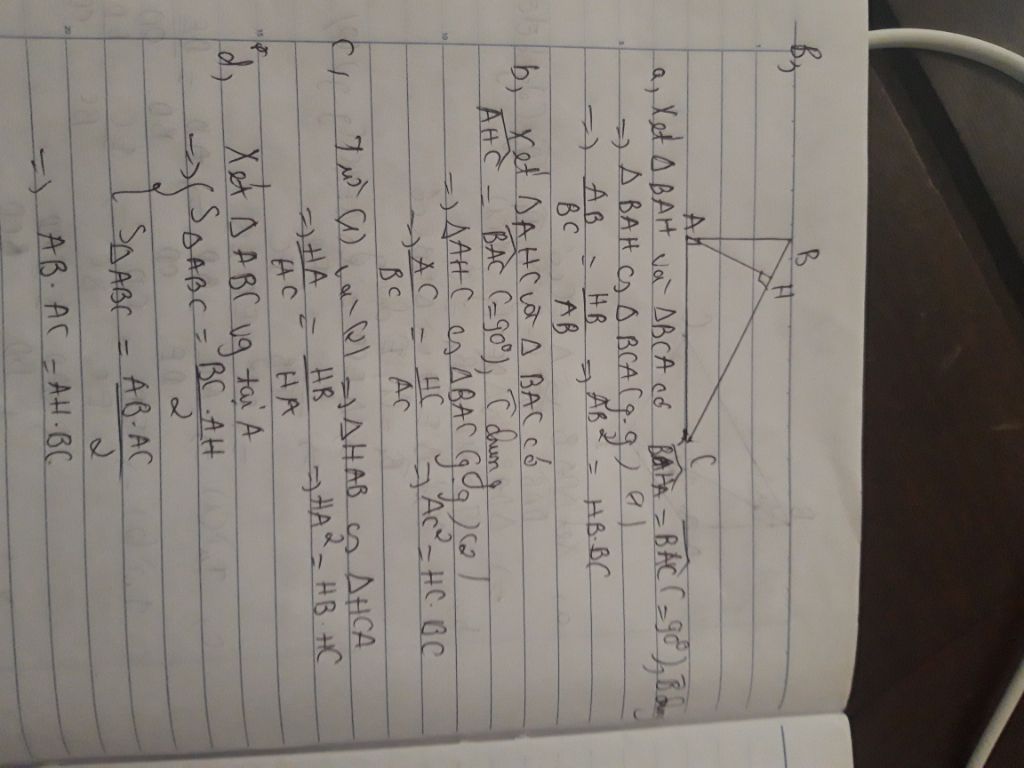 B,
B
H
A
C
a, Xét ΔBAH và ΔBCA có BHA = BAC (=90°), B chung
=> ΔBAH ∽ ΔBCA (g.g) (1)
=> AB/BC = HB/AB => AB² = HB.BC
b, Xét ΔAHC và ΔBAC có
AHC = BAC (=90°), C chung
=> ΔAHC ∽ ΔBAC (g.g) (2)
=> AC/BC = HC/AC => AC² = HC.BC
c, Từ (1) và (2) => ΔHAB ∽ ΔHCA
=> HA/HC = HB/HA => HA² = HB.HC
d, Xét ΔABC vg tại A
=> { SΔABC = BC.AH/2
{ SΔABC = AB.AC/2
=> AB.AC = AH.BC